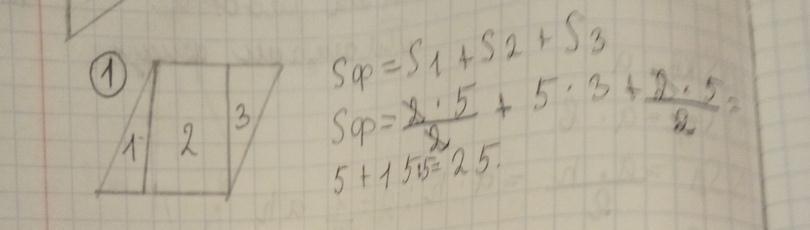 1
1 2 3
Sф=S1+S2+S3
Sф=2·5/2+5·3+2·5/2=
5+15+5=25.